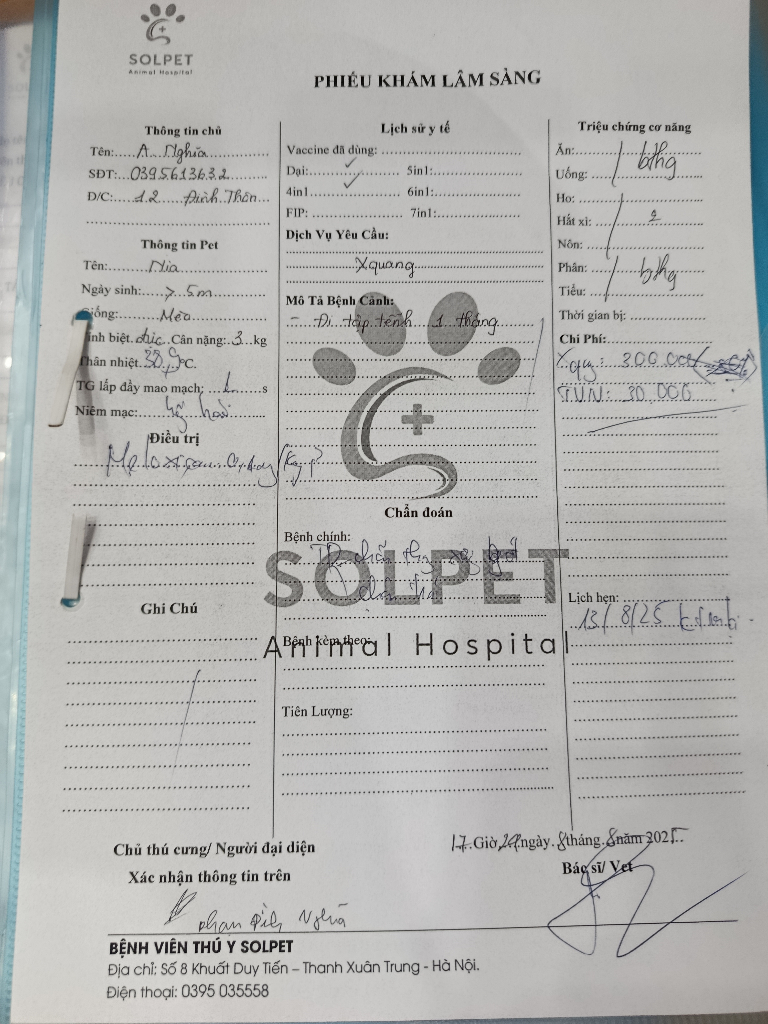 SOLPET
Animal Hospital
PHIẾU KHÁM LÂM SÀNG
Thông tin chủ
Tên: A. Nghĩa
SĐT: 0395613632
Đ/C: 12 Đình Thôn
Thông tin Pet
Tên: Mia
Ngày sinh: > 5m
Giống: Mèo
Tính biệt: đực. Cân nặng: 3 kg
Thân nhiệt: °C.
TG lấp đầy mao mạch: 1 s
Niêm mạc:
Điều trị
Meloxicam
Ghi Chú
Lịch sử y tế
Vaccine đã dùng:
Dại: ✓ 5in1:
4in1 ✓ 6in1:
FIP: 7in1:
Dịch Vụ Yêu Cầu:
Xquang
Mô Tả Bệnh Cảnh:
- Đi tập tễnh 1 tháng
Chẩn đoán
Bệnh chính:
SOLPET
Animal Hospital
Bệnh kèm theo:
Tiên Lượng:
Triệu chứng cơ năng
Ăn:
bthg
Uống:
Ho:
Hắt xì:
Nôn:
Phân:
bthg
Tiểu:
Thời gian bị:
Chi Phí:
Xqg: 300.000
TVN: 30.000
Lịch hẹn:
13/8/25
17 Giờ ngày 8 tháng 8 năm 2025
Chủ thú cưng/ Người đại diện
Xác nhận thông tin trên
Bác sĩ/ Vet
Phan Đình Nghĩa
BỆNH VIỆN THÚ Y SOLPET
Địa chỉ: Số 8 Khuất Duy Tiến – Thanh Xuân Trung - Hà Nội.
Điện thoại: 0395 035558